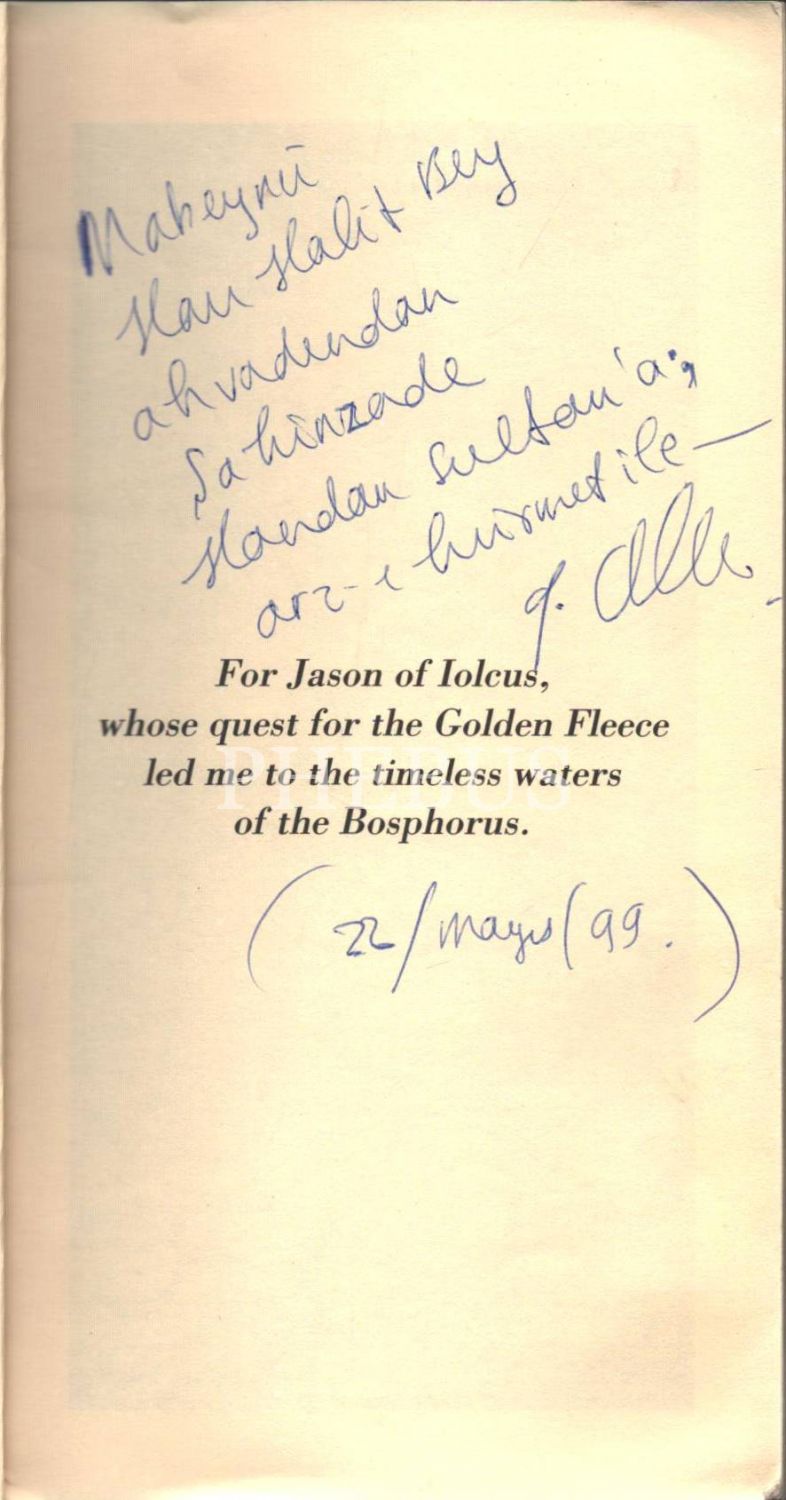 Mabeynü
Han Halit Bey
ahvadından
Şahinzade
Handan Sultan'a;
arz-ı hürmet ile
For Jason of Iolcus,
whose quest for the Golden Fleece
led me to the timeless waters
of the Bosphorus.
PHEBUS
(22/mayıs/99.)